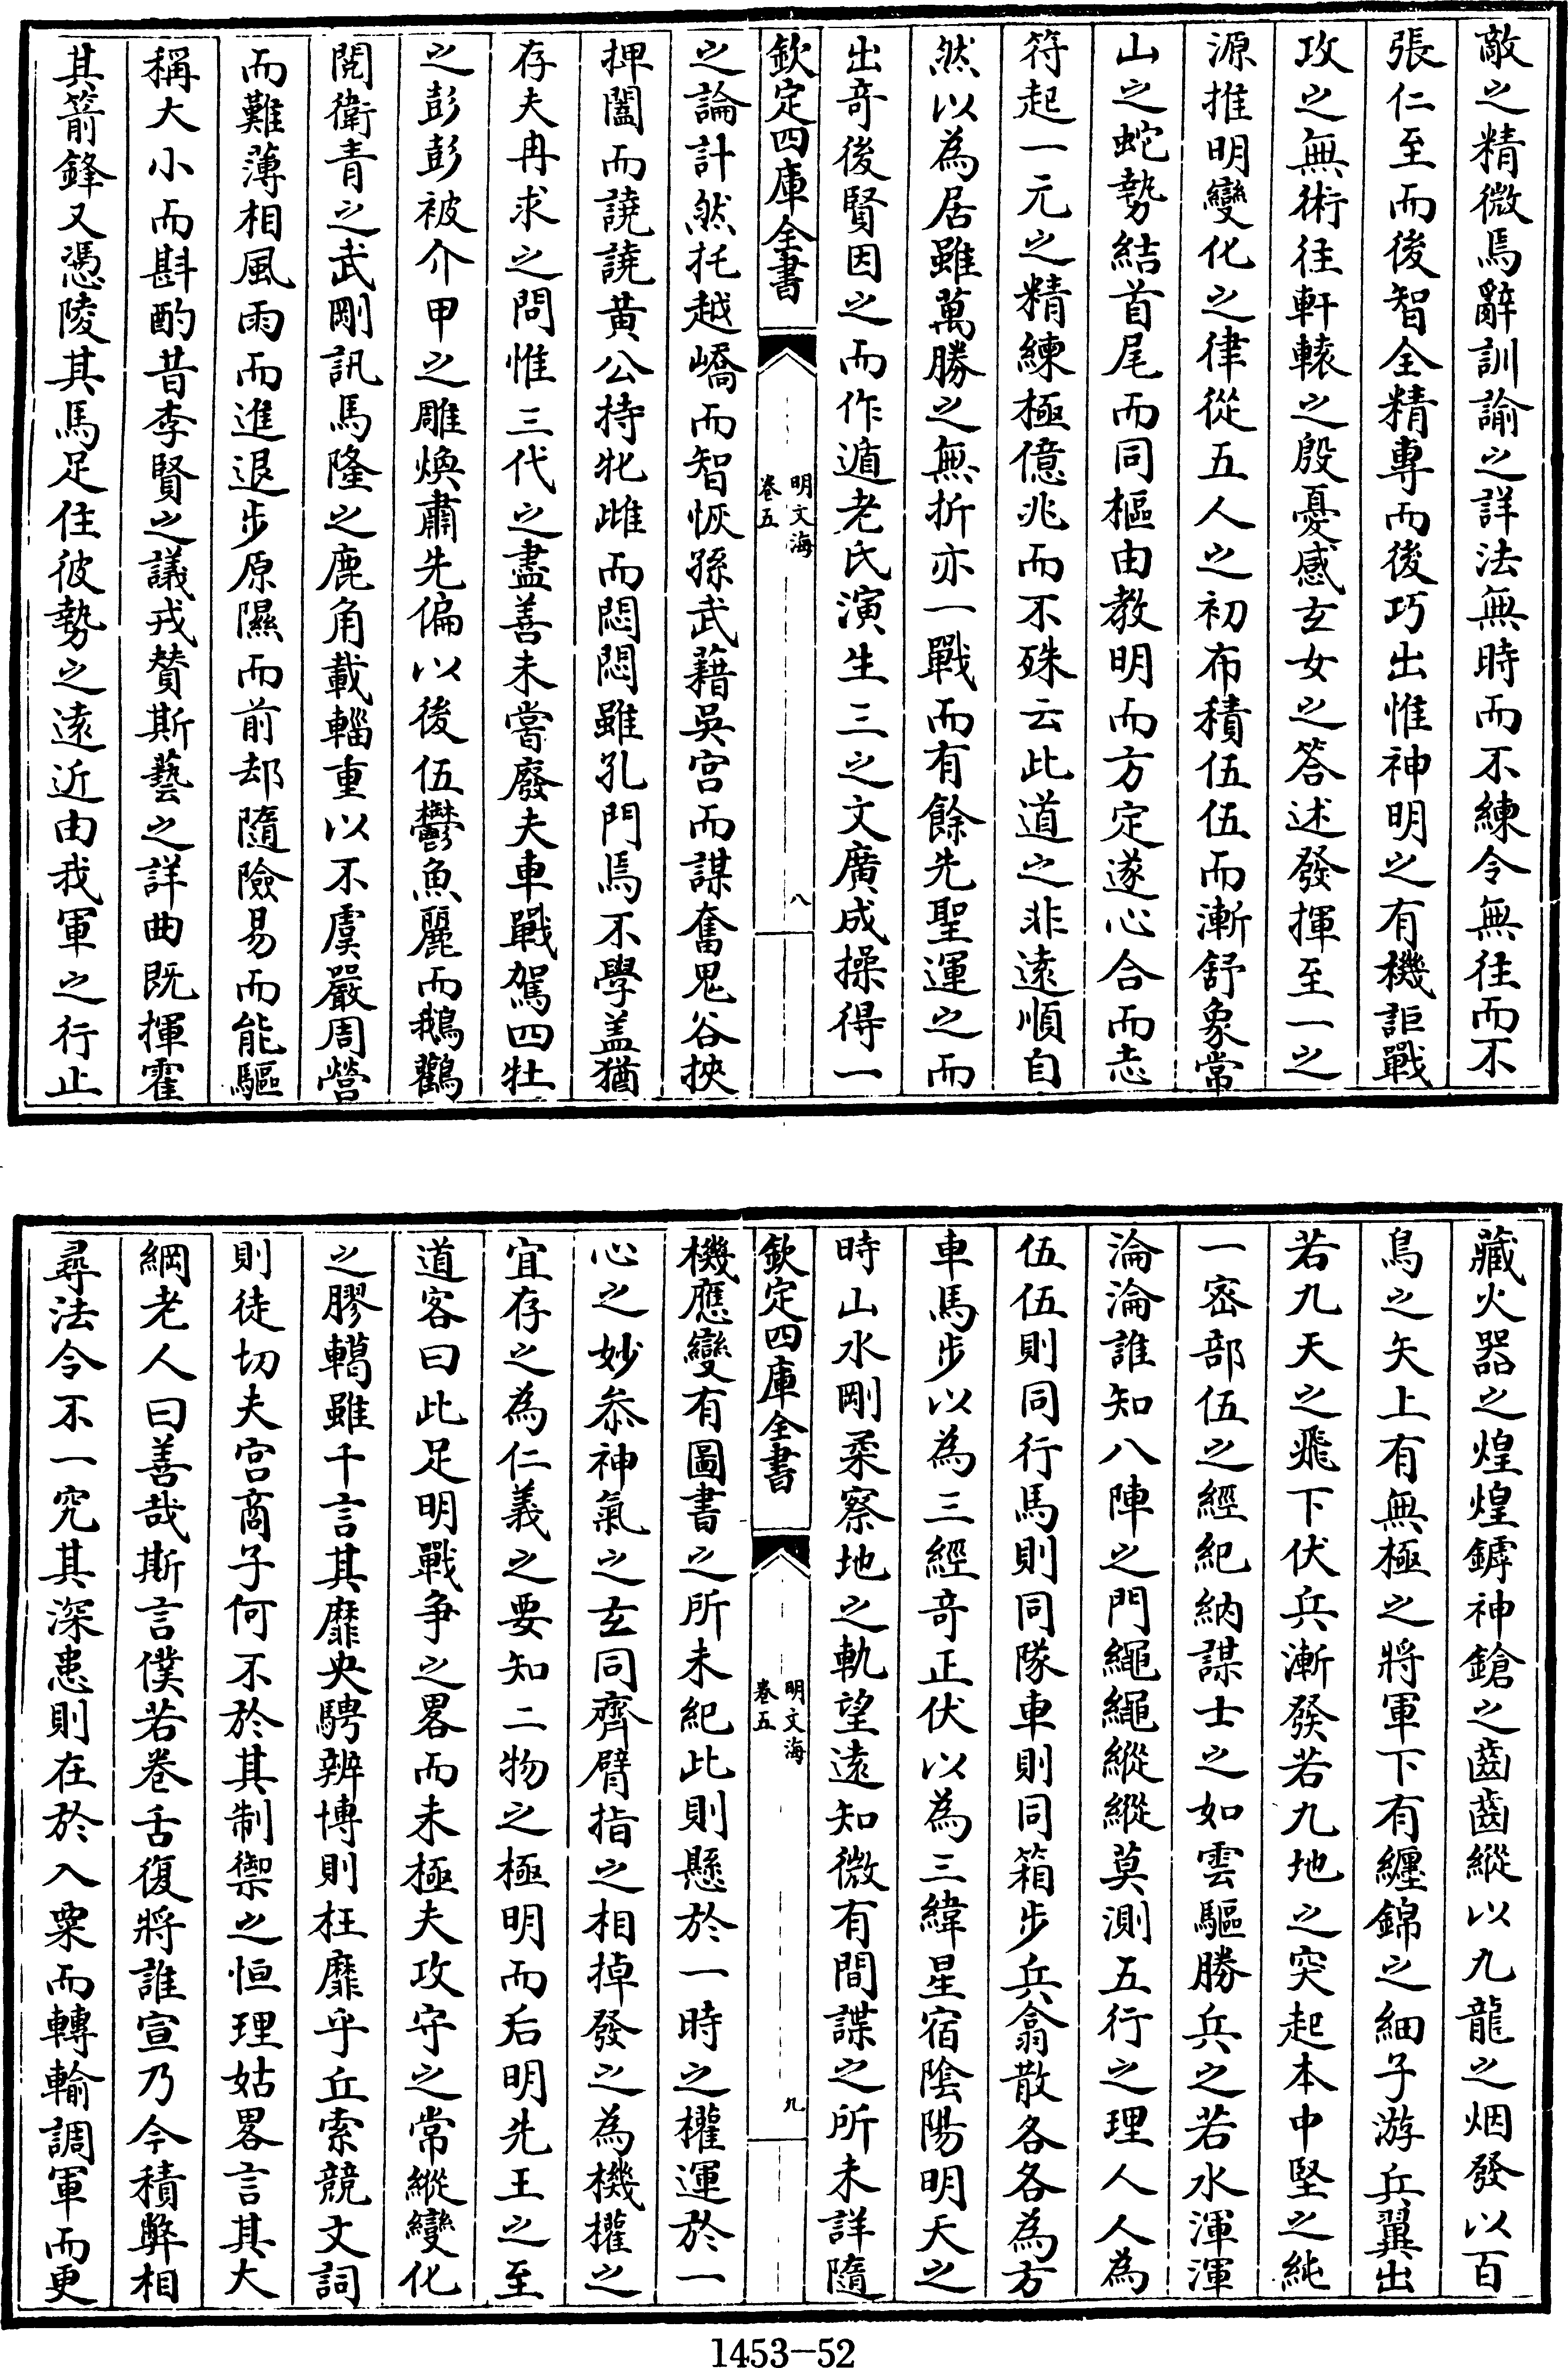 敵之精微焉辭訓諭之詳法無時而不練令無往而不
張仁至而後智全精專而後巧出惟神明之有機詎戰
攻之無術往軒轅之殷憂感玄女之答述發揮至一之
源推明變化之律從五人之初布積伍伍而漸舒象常
山之蛇勢結首尾而同樞由教明而方定遂心合而志
符起一元之精練極億兆而不殊云此道之非遠順自
然以為居雖萬勝之無折亦一戰而有餘先聖運之而
出奇後賢因之而作遁老氏演生三之文廣成操得一
欽定四庫全書
明文海
卷五
八
之論計然托越嶠而智恢孫武藉吳宮而謀奮鬼谷挾
捭闔而譊譊黃公持牝雌而悶悶雖孔門焉不學盖猶
存夫冉求之問惟三代之盡善未嘗廢夫車戰駕四牡
之彭彭被介甲之雕煥肅先偏以後伍鬱魚麗而鵝鸛
閱衛青之武剛訊馬隆之鹿角載輜重以不虞嚴周營
而難薄相風雨而進退步原隰而前却隨險易而能驅
稱大小而斟酌昔李賢之議戎賛斯藝之詳曲既揮霍
其箭鋒又憑陵其馬足住彼勢之遠近由我軍之行止
藏火器之煌煌鎼神鎗之齒齒縱以九龍之烟發以百
鳥之矢上有無極之將軍下有纏錦之細子游兵翼出
若九天之飛下伏兵漸發若九地之突起本中堅之純
一密部伍之經紀納謀士之如雲驅勝兵之若水渾渾
淪淪誰知八陣之門繩繩縱縱莫測五行之理人人為
伍伍則同行馬則同隊車則同箱步兵翕散各各為方
車馬步以為三經奇正伏以為三緯星宿陰陽明天之
時山水剛柔察地之軌望遠知微有間諜之所未詳隨
欽定四庫全書
明文海
卷五
九
機應變有圖書之所未紀此則懸於一時之權運於一
心之妙叅神氣之玄同齊臂指之相掉發之為機權之
宜存之為仁義之要知二物之極明而后明先王之至
道客曰此足明戰争之畧而未極夫攻守之常縱變化
之膠轕雖千言其靡央騁辨博則枉靡乎丘索競文詞
則徒切夫宮商子何不於其制禦之恒理姑畧言其大
綱老人曰善哉斯言僕若卷舌復將誰宣乃今積弊相
尋法令不一究其深患則在於入粟而轉輸調軍而更
1453—52